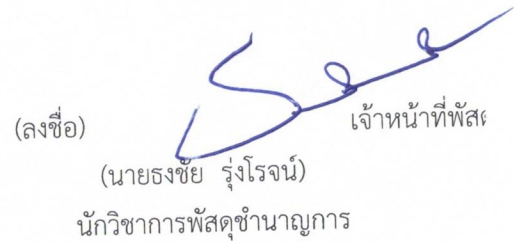 (ลงชื่อ) เจ้าหน้าที่พัสดุ
(นายธงชัย รุ่งโรจน์)
นักวิชาการพัสดุชำนาญการ